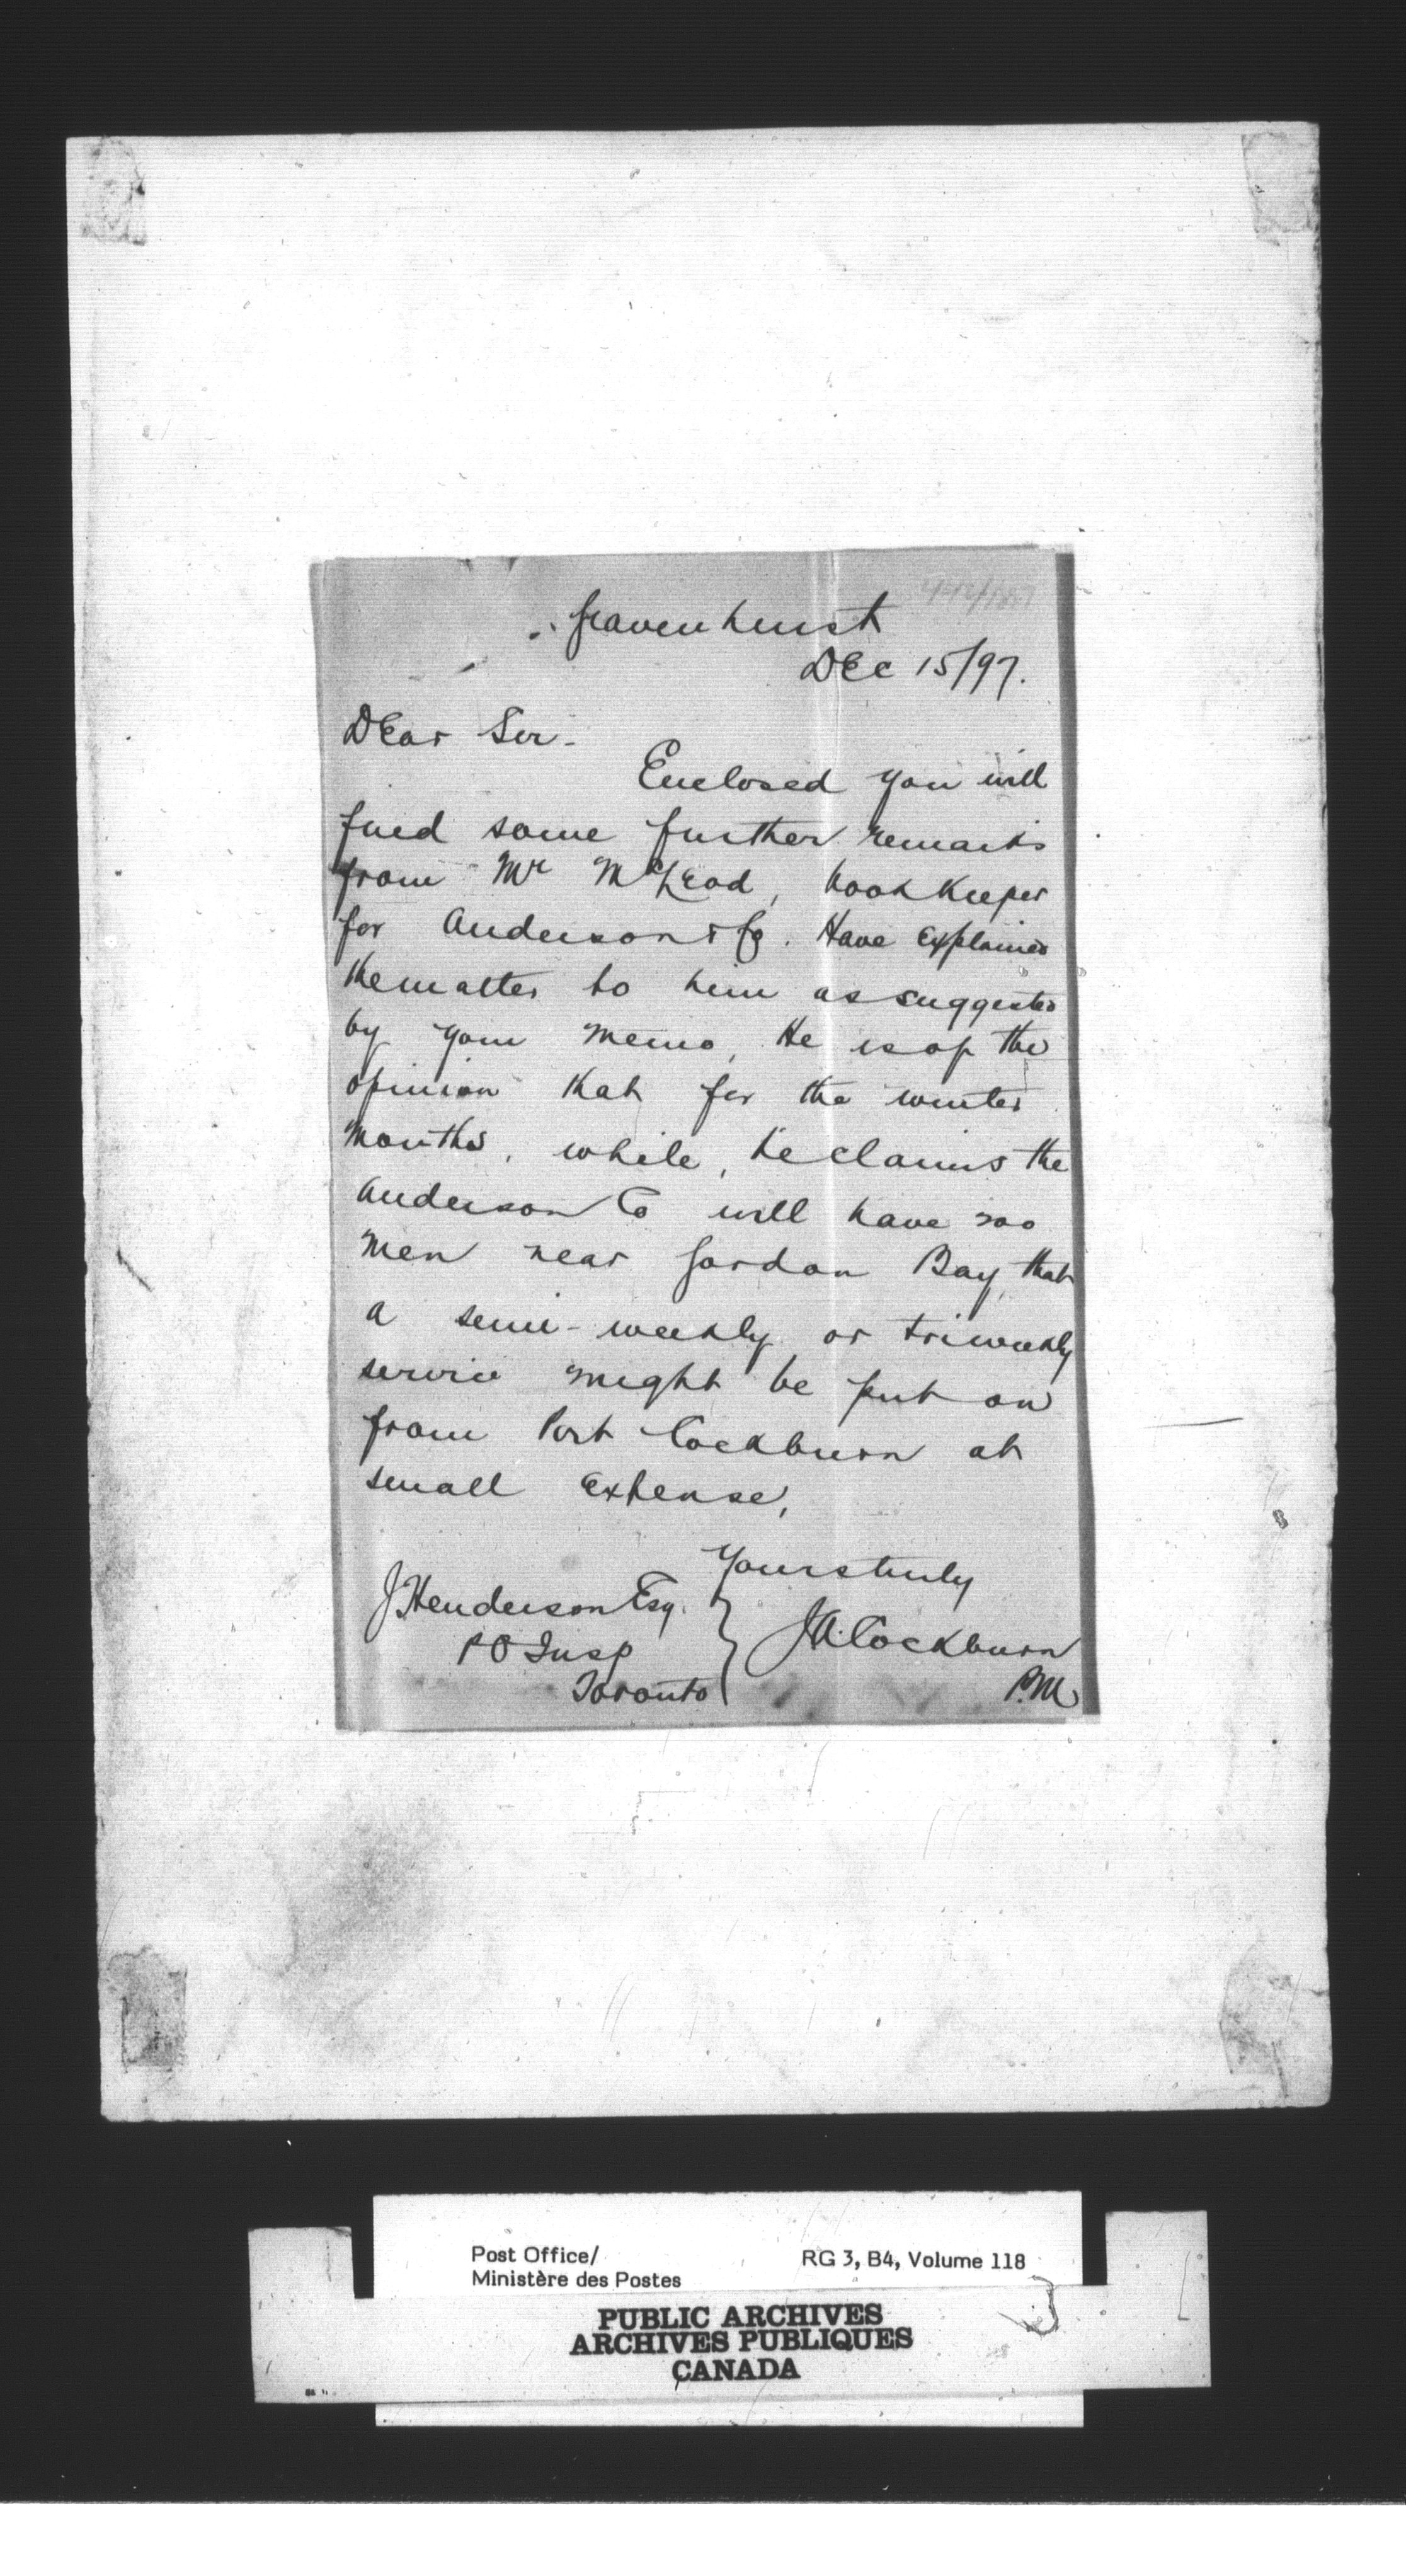 Gravenhurst
Dec 15/97.
Dear Sir -
Enclosed you will
find some further remarks
from Mr McLeod, bookkeeper
for Anderson & Co. Have explained
the matter to him as suggested
by your memo, He is of the
opinion that for the winter
months, while, he claims the
Anderson Co will have 200
men near Gordon Bay, that
a semi-weekly or triweekly
service might be put on
from Port Cockburn at
small expense,
Yours truly
J Henderson Esq.
P O Insp
Toronto
J A Cockburn
P.M
Post Office/
Ministère des Postes
RG 3, B4, Volume 118
PUBLIC ARCHIVES
ARCHIVES PUBLIQUES
CANADA